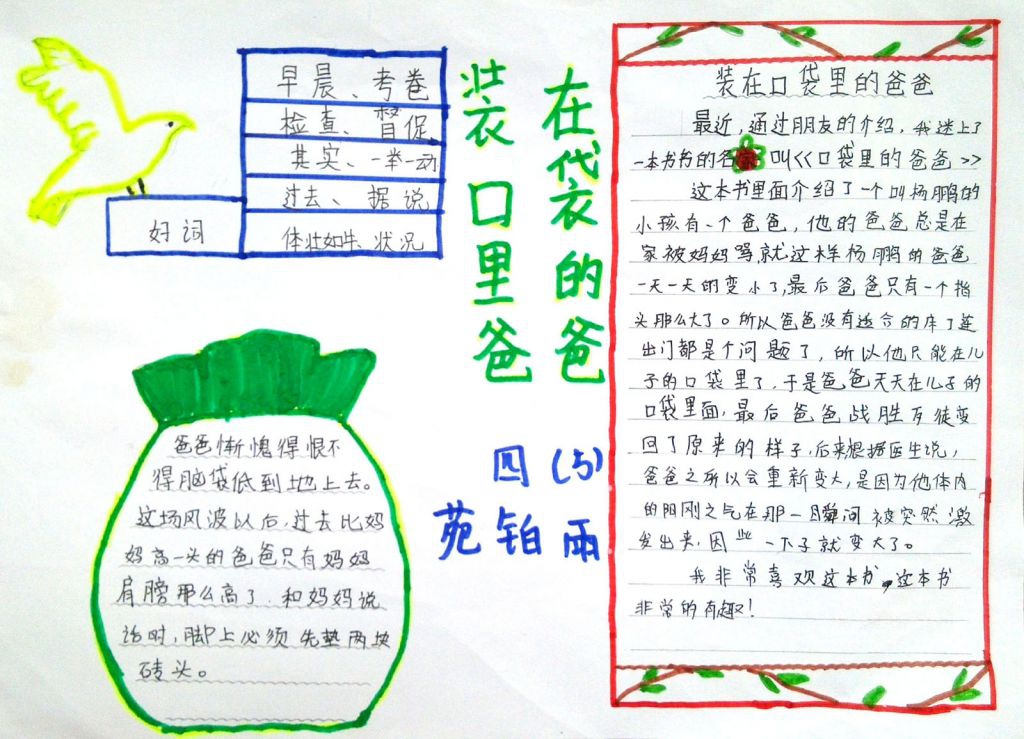 早晨、考卷
检查、督促
其实、一举一动
过去、据说
体壮如牛、状况
好词
装在
口袋
里的
爸爸
四(5)
苑铂雨
爸爸惭愧得恨不
得脑袋低到地上去。
这场风波以后,过去比妈
妈高一头的爸爸只有妈妈
肩膀那么高了.和妈妈说
话时,脚上必须先垫两块
砖头。
装在口袋里的爸爸
最近,通过朋友的介绍,我迷上了
一本书书的名 叫<<口袋里的爸爸>>
这本书里面介绍了一个叫杨鹏的
小孩有一个爸爸,他的爸爸总是在
家被妈妈骂,就这样杨鹏的爸爸
一天一天的变小了,最后爸爸只有一个指
头那么大了。所以爸爸没有适合的床了连
出门都是个问题了,所以他只能在儿
子的口袋里了,于是爸爸天天在儿子的
口袋里面,最后爸爸战胜歹徒变
回了原来的样子,后来根据医生说,
爸爸之所以会重新变大,是因为他体内
的阳刚之气在那一瞬间被突然激
发出来,因此一下子就变大了。
我非常喜欢这本书,这本书
非常的有趣!